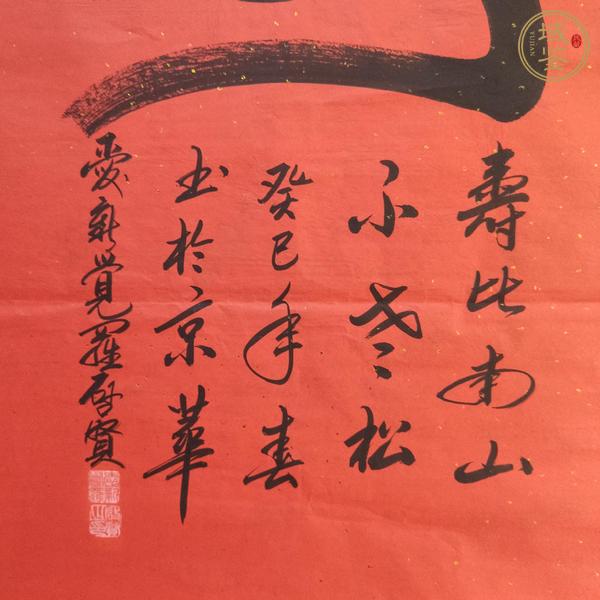 壽比南山
不老松
癸巳年春
书於京華
愛新覺羅啓賢
YUJIAN